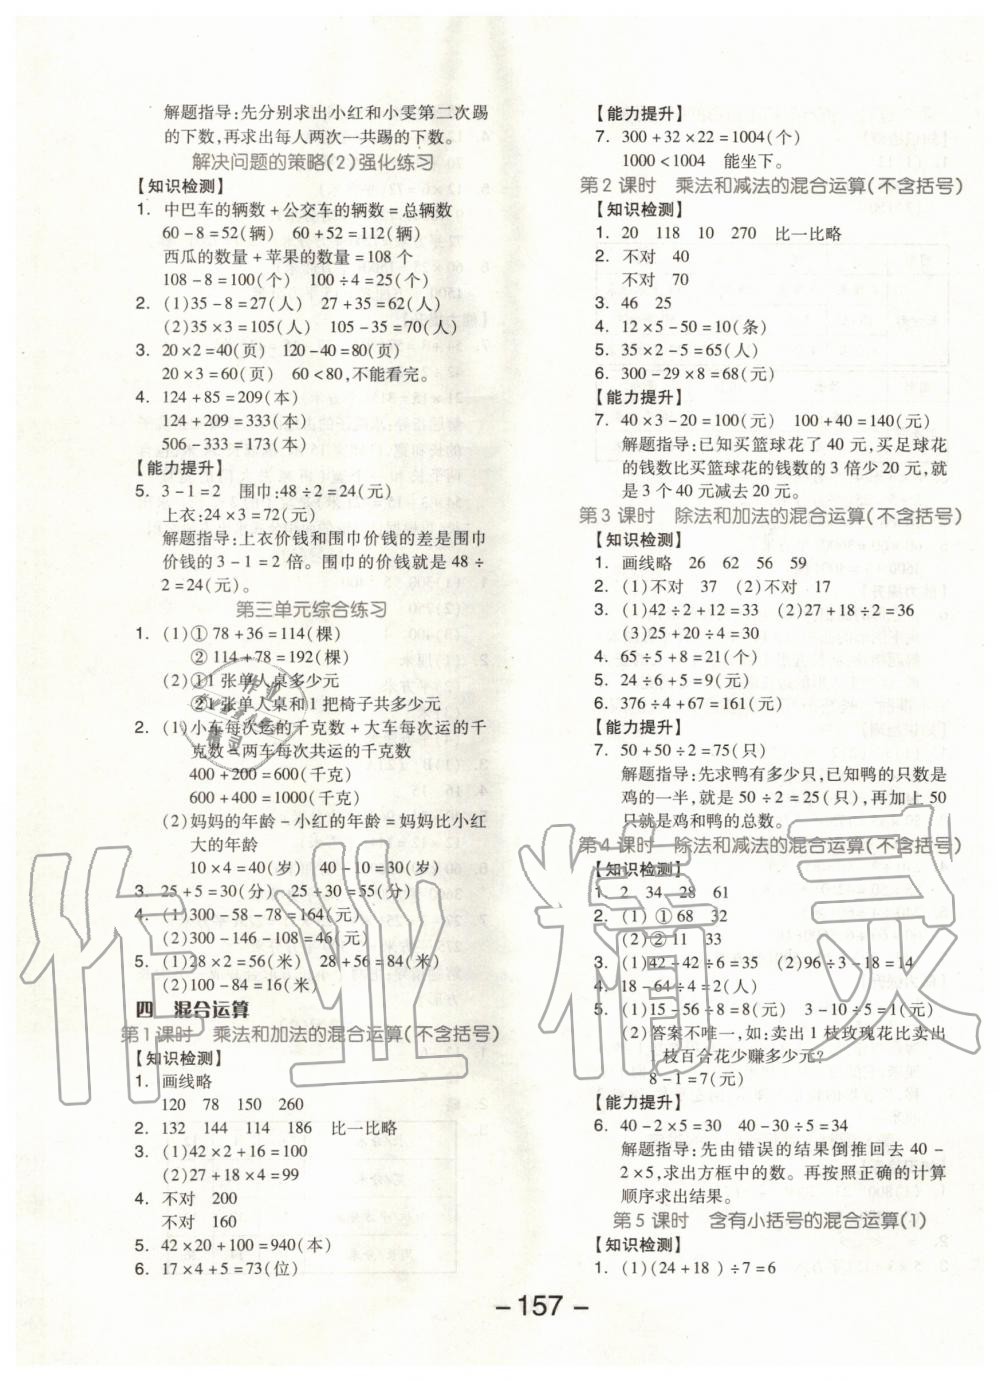 解题指导:先分别求出小红和小雯第二次踢
的下数,再求出每人两次一共踢的下数。
解决问题的策略(2)强化练习
【知识检测】
1. 中巴车的辆数+公交车的辆数=总辆数
60-8=52(辆) 60+52=112(辆)
西瓜的数量+苹果的数量=108个
108-8=100(个) 100÷4=25(个)
2. (1)35-8=27(人) 27+35=62(人)
(2)35×3=105(人) 105-35=70(人)
3. 20×2=40(页) 120-40=80(页)
20×3=60(页) 60<80,不能看完。
4. 124+85=209(本)
124+209=333(本)
506-333=173(本)
【能力提升】
5. 3-1=2 围巾:48÷2=24(元)
上衣:24×3=72(元)
解题指导:上衣价钱和围巾价钱的差是围巾
价钱的3-1=2倍。围巾的价钱就是48÷
2=24(元)。
第三单元综合练习
1. (1)①78+36=114(棵)
②114+78=192(棵)
(2)①1张单人桌多少元
②1张单人桌和1把椅子共多少元
2. (1)小车每次运的千克数+大车每次运的千
克数=两车每次共运的千克数
400+200=600(千克)
600+400=1000(千克)
(2)妈妈的年龄-小红的年龄=妈妈比小红
大的年龄
10×4=40(岁) 40-10=30(岁)
3. 25+5=30(分) 25+30=55(分)
4. (1)300-58-78=164(元)
(2)300-146-108=46(元)
5. (1)28×2=56(米) 28+56=84(米)
(2)100-84=16(米)
四 混合运算
第1课时 乘法和加法的混合运算(不含括号)
【知识检测】
1. 画线略
120 78 150 260
2. 132 144 114 186 比一比略
3. (1)42×2+16=100
(2)27+18×4=99
4. 不对 200
不对 160
5. 42×20+100=940(本)
6. 17×4+5=73(位)
【能力提升】
7. 300+32×22=1004(个)
1000<1004 能坐下。
第2课时 乘法和减法的混合运算(不含括号)
【知识检测】
1. 20 118 10 270 比一比略
2. 不对 40
不对 70
3. 46 25
4. 12×5-50=10(条)
5. 35×2-5=65(人)
6. 300-29×8=68(元)
【能力提升】
7. 40×3-20=100(元) 100+40=140(元)
解题指导:已知买篮球花了40元,买足球花
的钱数比买篮球花的钱数的3倍少20元,就
是3个40元减去20元。
第3课时 除法和加法的混合运算(不含括号)
【知识检测】
1. 画线略 26 62 56 59
2. (1)不对 37 (2)不对 17
3. (1)42÷2+12=33 (2)27+18÷2=36
(3)25+20÷4=30
4. 65÷5+8=21(个)
5. 24÷6+5=9(元)
6. 376÷4+67=161(元)
【能力提升】
7. 50+50÷2=75(只)
解题指导:先求鸭有多少只,已知鸭的只数是
鸡的一半,就是50÷2=25(只),再加上50
只就是鸡和鸭的总数。
第4课时 除法和减法的混合运算(不含括号)
【知识检测】
1. 2 34 28 61
2. (1)①68 32
(2)②11 33
3. (1)42-42÷6=35 (2)96÷3-18=14
4. 18-64÷4=2(人)
5. (1)15-56÷8=8(元) 3-10÷5=1(元)
(2)答案不唯一,如:卖出1枝玫瑰花比卖出
1枝百合花少赚多少元?
8-1=7(元)
【能力提升】
6. 40-2×5=30 40-30÷5=34
解题指导:先由错误的结果倒推回去40-
2×5,求出方框中的数。再按照正确的计算
顺序求出结果。
第5课时 含有小括号的混合运算(1)
【知识检测】
1. (1)(24+18)÷7=6
-157-
作业精灵